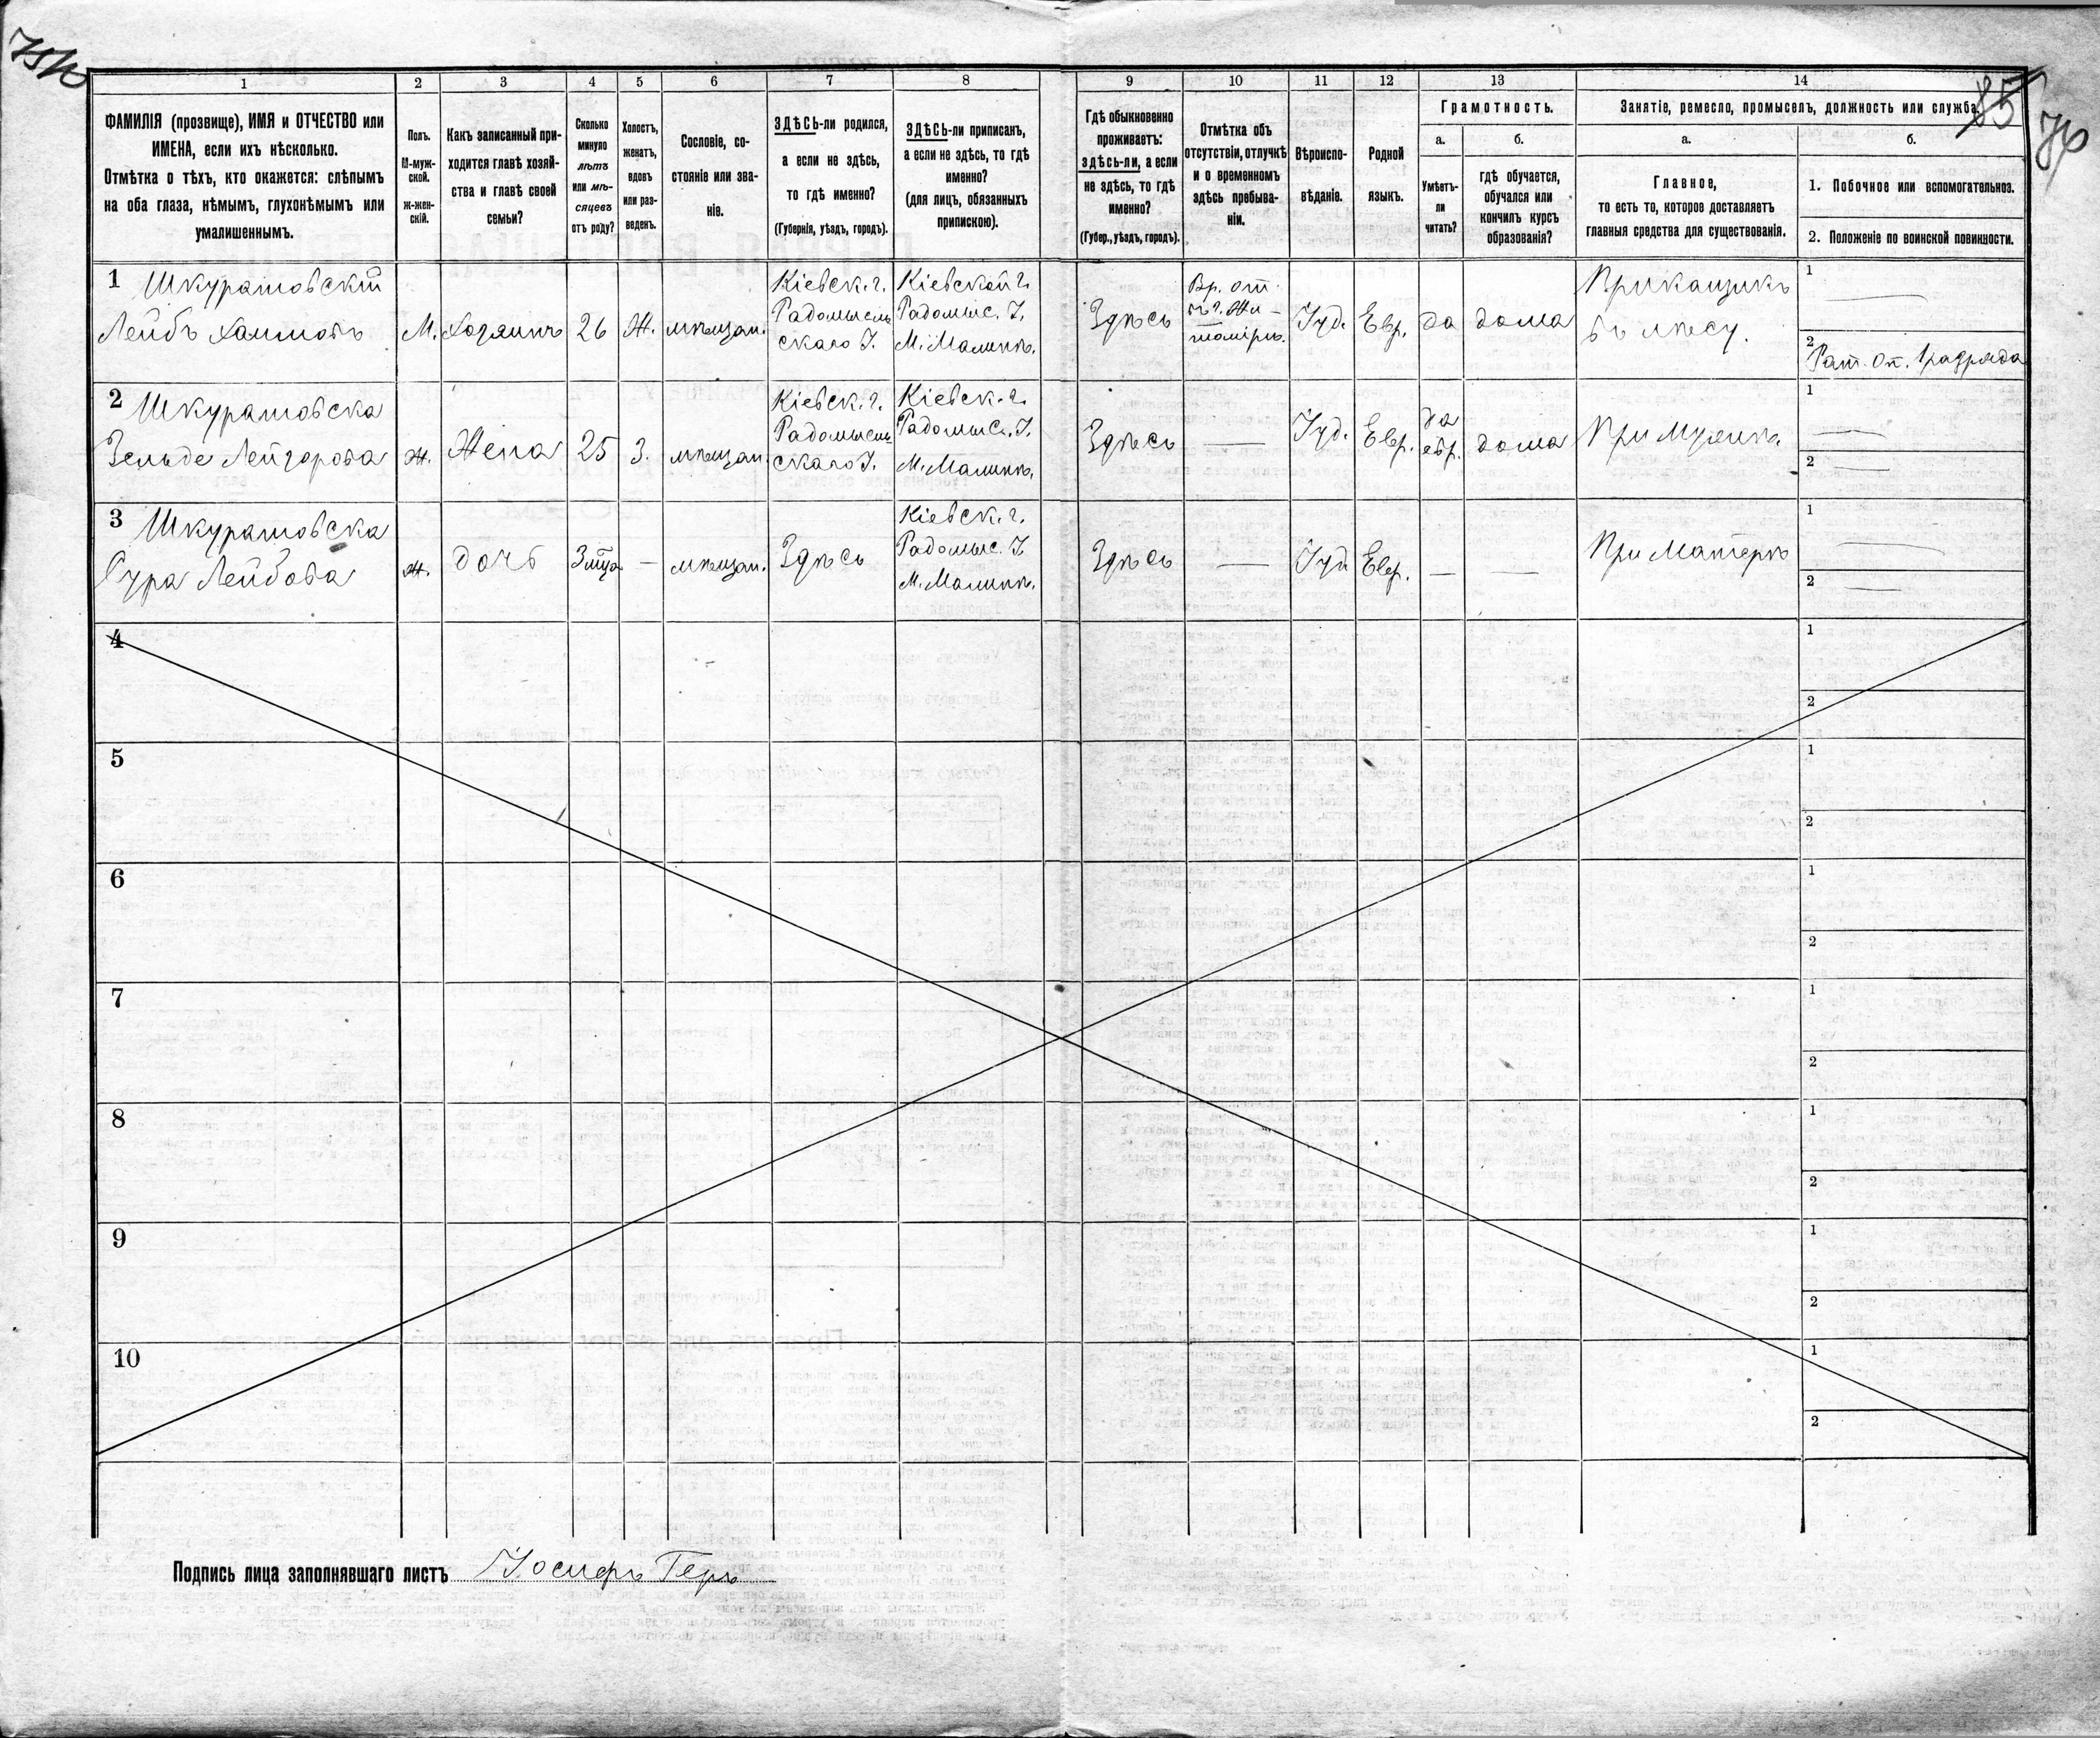 75 об
85
76
1
2
3
4
5
6
7
8
9
10
11
12
13
14
ФАМИЛІЯ (прозвище), ИМЯ и ОТЧЕСТВО или
ИМЕНА, если ихъ нѣсколько.
Отмѣтка о тѣхъ, кто окажется: слѣпымъ
на оба глаза, нѣмымъ, глухонѣмымъ или
умалишеннымъ.
Полъ.
М-муж-
ской.
Ж-жен-
скій.
Какъ записанный при-
ходится главѣ хозяй-
ства и главѣ своей
семьи?
Сколько
минуло
лѣтъ
или мѣ-
сяцевъ
отъ роду?
Холостъ,
женатъ,
вдовъ
или раз-
веденъ.
Сословіе, со-
стояніе или зва-
ніе.
ЗДѢСЬ-ли родился,
а если не здѣсь,
то гдѣ именно?
(Губернія, уѣздъ, городъ).
ЗДѢСЬ-ли приписанъ,
а если не здѣсь, то гдѣ
именно?
(для лицъ, обязанныхъ
припискою).
Гдѣ обыкновенно
проживаетъ:
здѣсь-ли, а если
не здѣсь, то гдѣ
именно?
(Губер., уѣздъ, городъ).
Отмѣтка объ
отсутствіи, отлучкѣ
и о временномъ
здѣсь пребыва-
ніи.
Вѣроиспо-
вѣданіе.
Родной
языкъ.
Грамотность.
а.
Умѣетъ-
ли
читать?
б.
гдѣ обучается,
обучался или
кончилъ курсъ
образованія?
Занятіе, ремесло, промыселъ, должность или служба.
а.
Главное,
то есть то, которое доставляетъ
главныя средства для существованія.
б.
1. Побочное или вспомогательноз.
2. Положеніе по воинской повинности.
1 Шкуратовскій
Лейбъ Хаимовъ
М.
Хозяинъ
26
Ж.
мѣщан.
Кіевск. г.
Радомысль
скаго У.
Кіевской г.
Радомыс. У.
М. Малинъ.
Здѣсь
Вр. от.
въ г. Жи-
томірѣ.
Іуд.
Евр.
да
дома
Прикащикъ
въ лѣсу.
1
2
Рат. оп. 1 разряда
2 Шкуратовска
Зельде Лейзорова
Ж.
Жена
25
З.
мѣщан.
Кіевск. г.
Радомысль
скаго У.
Кіевск. г.
Радомыс. У.
М. Малинъ.
Здѣсь
Іуд.
Евр.
да
евр.
дома
При Мужѣ
1
2
3 Шкуратовска
Сура Лейбова
Ж.
дочь
мѣщан.
Здѣсь
Кіевск. г.
Радомыс. У.
М. Малинъ.
Здѣсь
Іуд
Евр.
При Матерѣ
1
2
4
1
2
5
1
2
6
1
2
7
1
2
8
1
2
9
1
2
10
1
2
Подпись лица заполнявшаго листъ Іосифъ Геръ